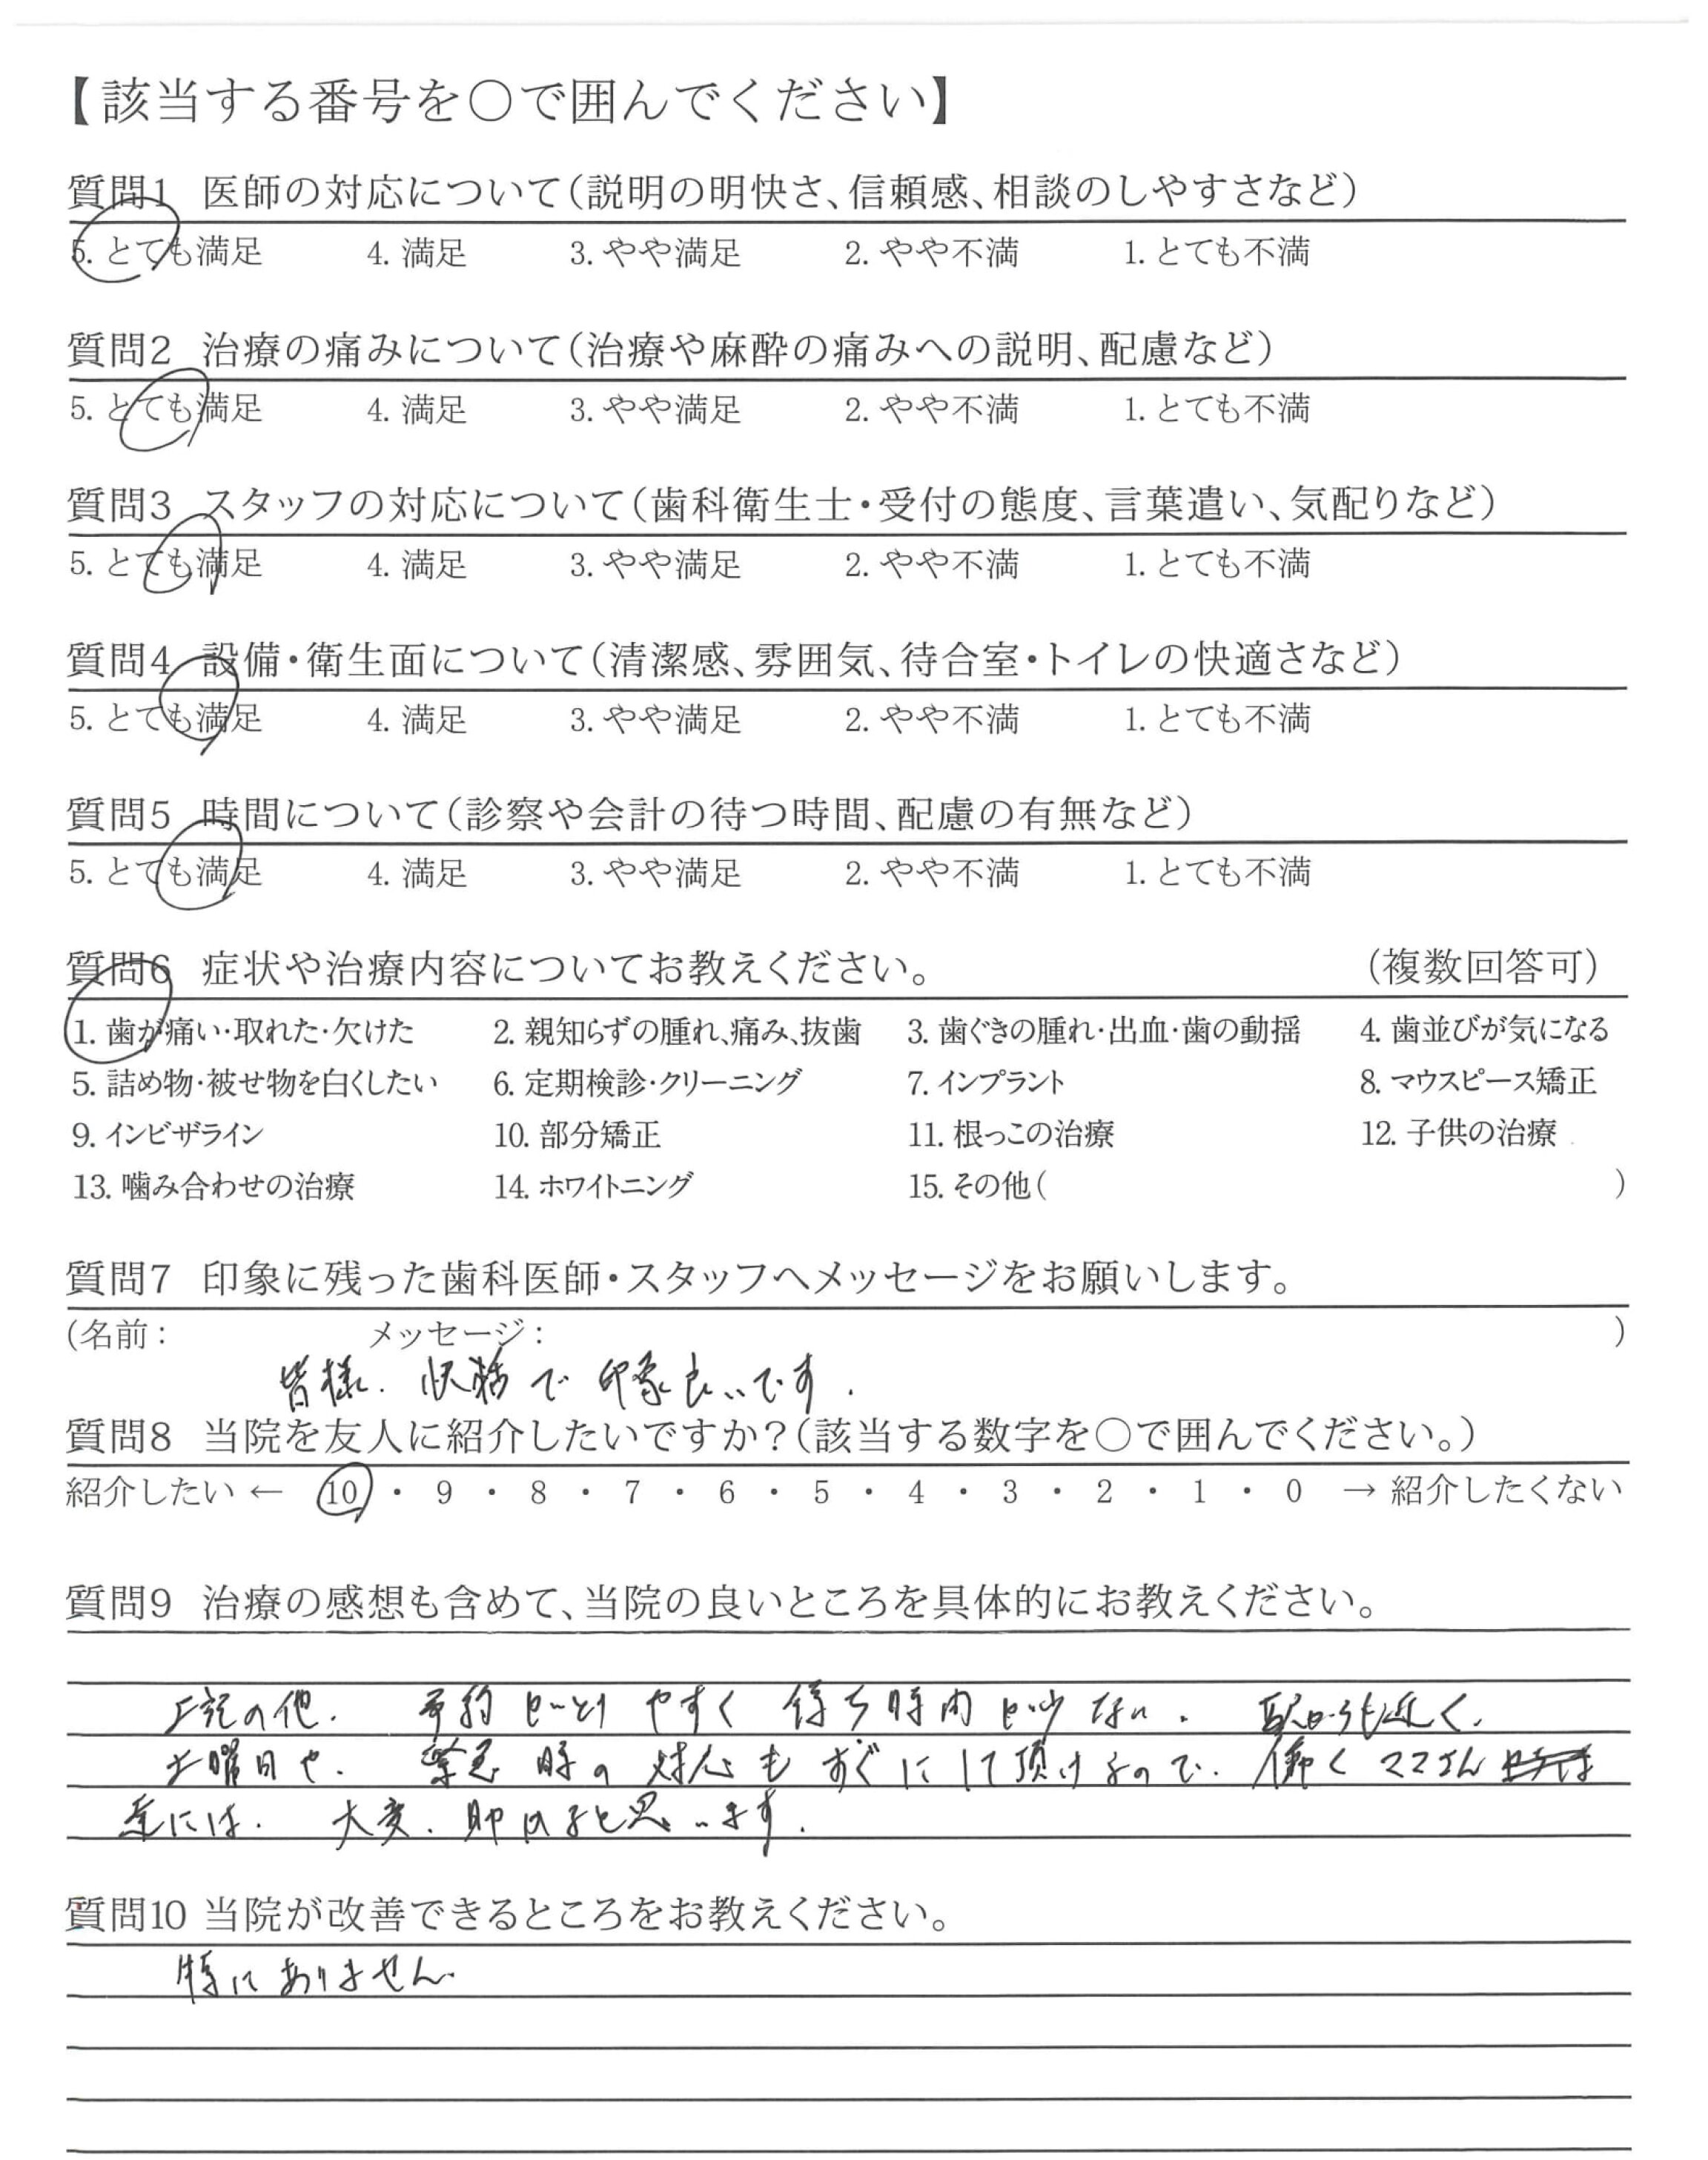 【該当する番号を〇で囲んでください】
質問1 医師の対応について(説明の明快さ、信頼感、相談のしやすさなど)
5. とても満足 4. 満足 3. やや満足 2. やや不満 1. とても不満
質問2 治療の痛みについて(治療や麻酔の痛みへの説明、配慮など)
5. とても満足 4. 満足 3. やや満足 2. やや不満 1. とても不満
質問3 スタッフの対応について(歯科衛生士・受付の態度、言葉遣い、気配りなど)
5. とても満足 4. 満足 3. やや満足 2. やや不満 1. とても不満
質問4 設備・衛生面について(清潔感、雰囲気、待合室・トイレの快適さなど)
5. とても満足 4. 満足 3. やや満足 2. やや不満 1. とても不満
質問5 時間について(診察や会計の待つ時間、配慮の有無など)
5. とても満足 4. 満足 3. やや満足 2. やや不満 1. とても不満
質問6 症状や治療内容についてお教えください。 (複数回答可)
1. 歯が痛い・取れた・欠けた 2. 親知らずの腫れ、痛み、抜歯 3. 歯ぐきの腫れ・出血・歯の動揺 4. 歯並びが気になる
5. 詰め物・被せ物を白くしたい 6. 定期検診・クリーニング 7. インプラント 8. マウスピース矯正
9. インビザライン 10. 部分矯正 11. 根っこの治療 12. 子供の治療
13. 噛み合わせの治療 14. ホワイトニング 15. その他( )
質問7 印象に残った歯科医師・スタッフへメッセージをお願いします。
(名前: メッセージ: )
皆様. 快活で 印象良いです.
質問8 当院を友人に紹介したいですか?(該当する数字を〇で囲んでください。)
紹介したい ← 10 ・ 9 ・ 8 ・ 7 ・ 6 ・ 5 ・ 4 ・ 3 ・ 2 ・ 1 ・ 0 → 紹介したくない
質問9 治療の感想も含めて、当院の良いところを具体的にお教えください。
上記の他. 予約もとりやすく 待ち時間も少ない. 駅からも近く.
土曜日や. 緊急時の対応もすぐにして頂けるので. 働くママさん
達には. 大変. 助かると思います.
質問10 当院が改善できるところをお教えください。
特にありません.